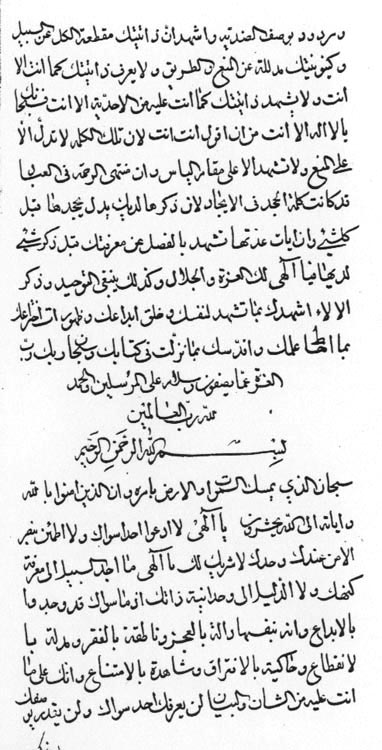 وبوصف الصمدية واشهد ان ذاتيتك مقطعة الكل عن السبيل
وكينونيتك مدلة عن المنع الطريق ولا يعرف ذاتيتك كما انت الا
انت ولا يشهد ذاتيتك كما انت عليه من الاحدية الا انت
بالا اله الا انت من ان اقول انت انت لان تلك الكلمة لا تدل الا
على المنع ولا تشهد الا على مقام الياس وان منتهى الرحمة فى العباد
قد كانت كلمة الايجاد لان ذكرها لديك يدل قبل
كلشيء وان ايات تشهد بالفصل عن معرفتك قبل ذكر شيء
الهي لك العزة والجلال وكذلك ينبغي التوحيد وذكر
الالاء اشهدك بما تشهد لنفسك وخلق ابداعك وظهورات اختراعك
بما احاط علمك واقدسك بما نزلت في كتابك سبحان ربك رب
العزة عما يصفون وسلام على المرسلين والحمد
لله رب العالمين
بسم الله الرحمن الرحيم
سبحان الذي يمسك السموات والارض بامره وان الذين امنوا بالله
واياته الى الله يحشرون يا الهي لا ادعوا احدا سواك ولا اطمئن بخير
الا من عندك وحدك لا شريك لك يا الهي ما اجد السبيل الى معرفة
كنهك ولا الدليل الى وحدانية ذاتك اذ ما سواك قد وجد
بالابداع وانه بنفسها دالة بالعجز وناطقة بالفقر ومدلة با
لانقطاع وحاكية بالافتراق وشاهدة بالامتناع وانك على ما
انت عليه من الشان والبيان لن يعرفك احد سواك ولن يقدر